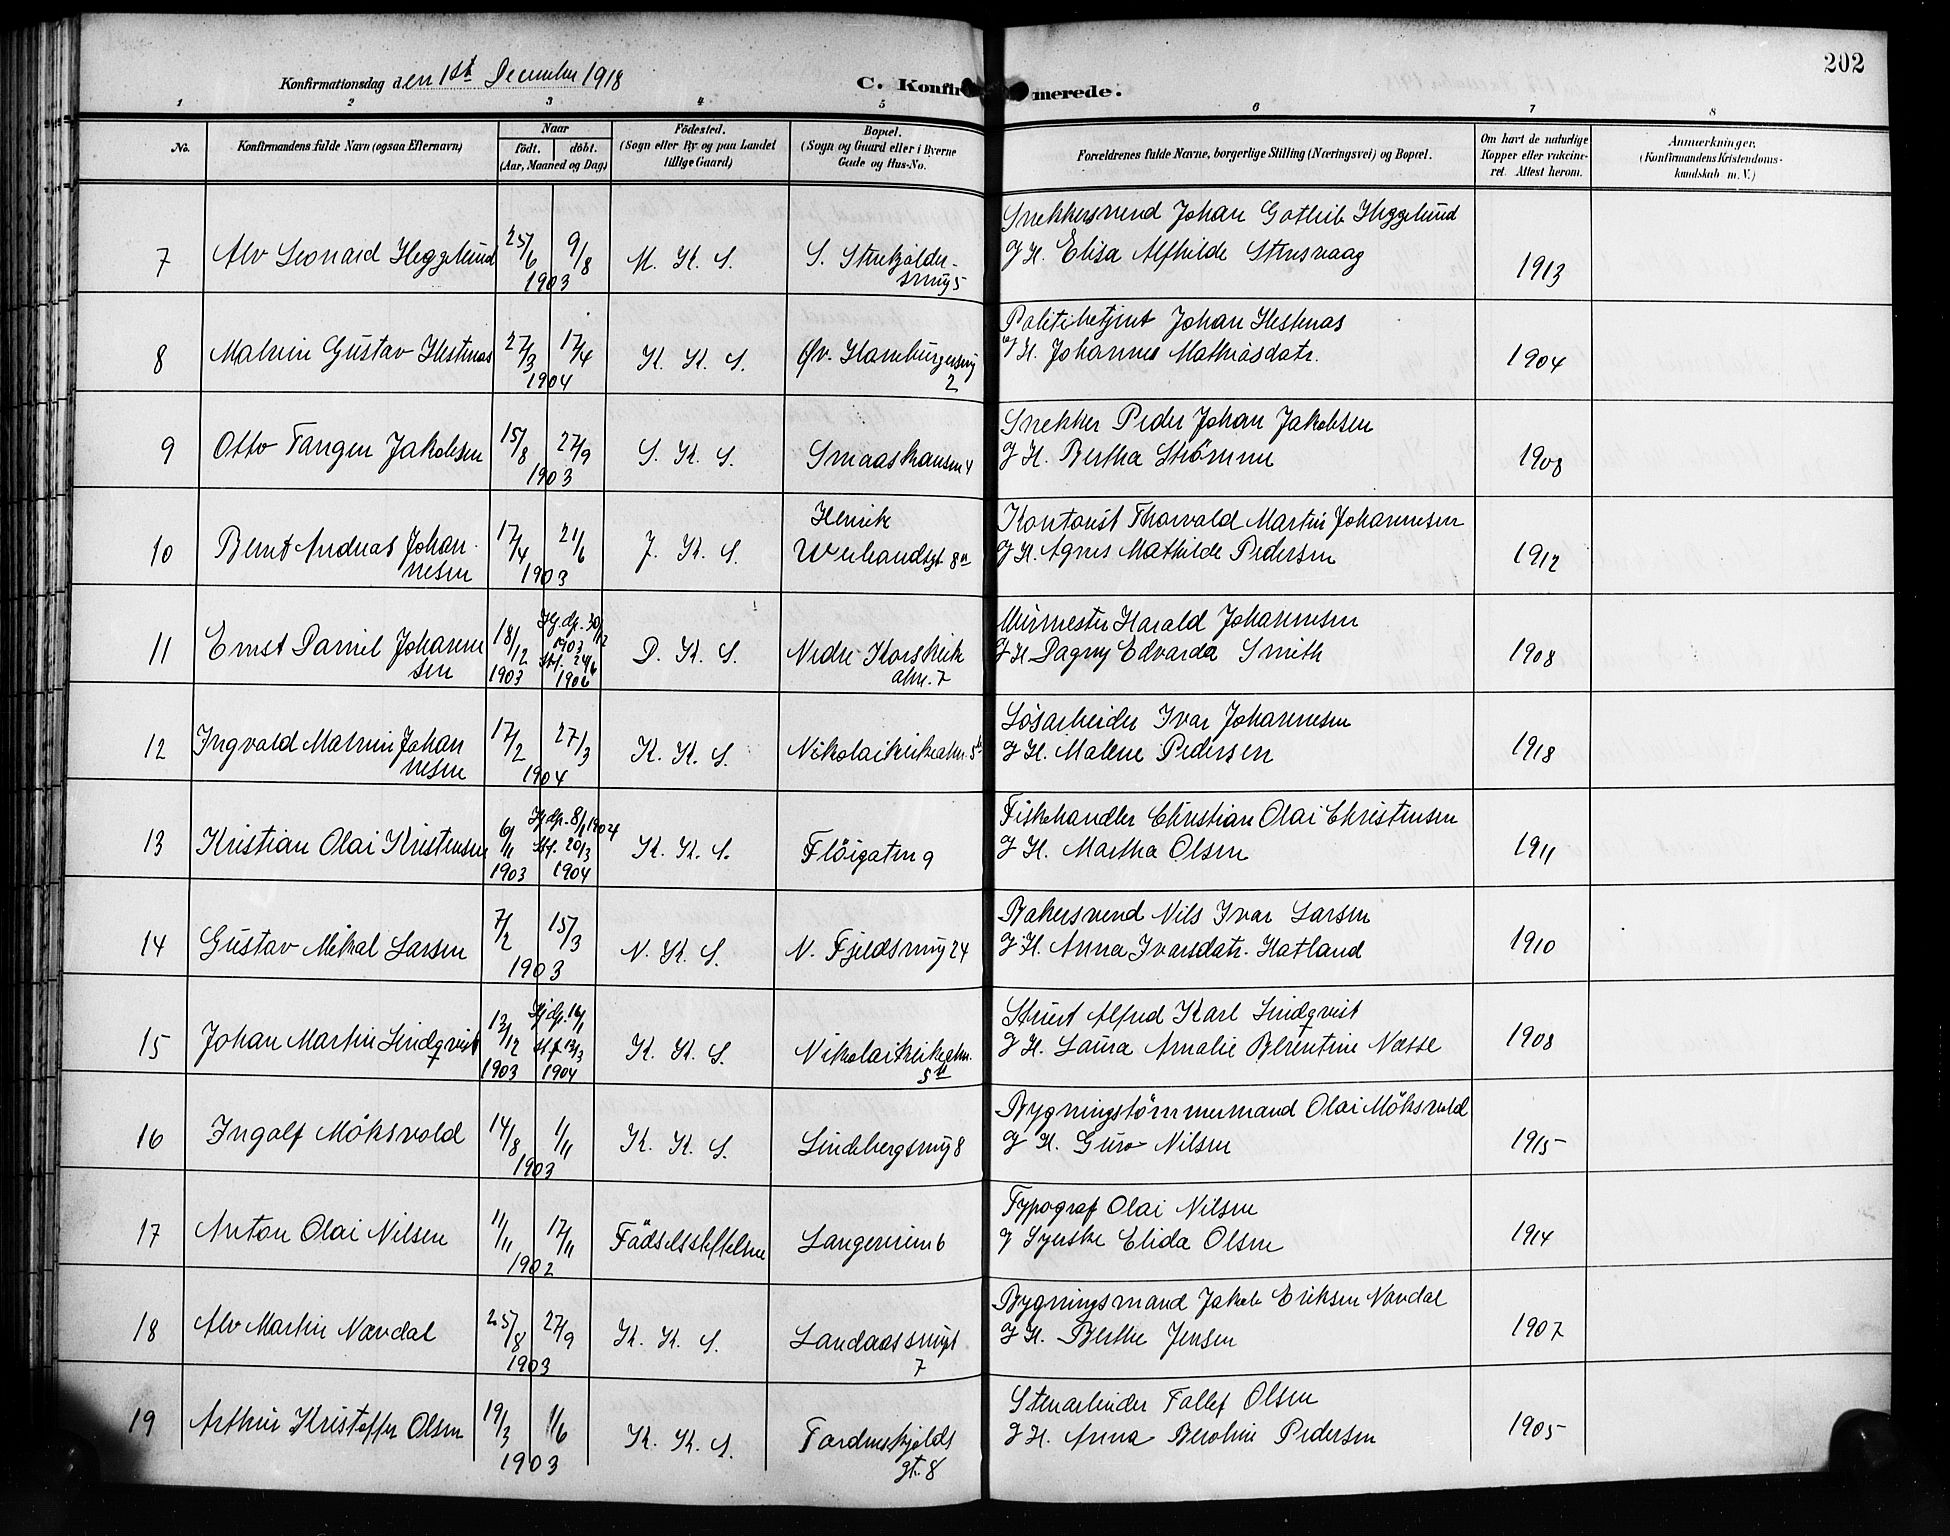 202
Konfirmationsdag den 1st December 1918
C. Konfirmerede.
1 2 3 4 5 6 7 8
No.
Konfirmandens fulde Navn (ogsaa Efternavn)
Naar
født. døbt.
(Aar, Maaned og Dag)
Födested.
(Sogn eller By og paa Landet
tillige Gaard)
Bopæl.
(Sogn og Gaard eller i Byerne
Gade og Hus-No.
Forældrenes fulde Navne, borgerlige Stilling (Næringsvei) og Bopæl.
Om havt de naturlige
Kopper eller vakcine-
ret. Attest herom.
Anmærkninger.
(Konfirmandens Kristendoms-
kundskab m. V.)
7 Alv Leonard Heggelund 25/6 9/8 1903 M. K. S. S. Strekjolder-
smug 5
Snekkersvend Johan Gotlieb Heggelund
g H. Elisa Alfhilde Strusvaag 1913
8 Malvin Gustav Hestnas 27/3 17/4 1904 K. K. S. Øv. Hamburgersmug
2
Politibetjent Johan Hestnas
g H. Johannes Mathiasdatr. 1904
9 Otto Tangen Jakobsen 15/8 27/9 1903 S. K. S. Smaaskansen 4
Snekker Peder Johan Jakobsen
g H. Bertha Strømme 1908
10 Bernt Andreas Johan-
nesen 17/4 21/6 1903 J. K. S. Henrik
Werhandsgt. 8a
Kontorist Thorvald Martin Johannesen
g H. Agnes Mathilde Pedersen 1912
11 Ernst Daniel Johanne
sen 18/12 1903 Hj. dp. 30/12
1903
Stf. 24/6
1906 D. K. S. Nedre Korskirk
alm. 7
Murmester Harald Johannesen
g H Dagny Edvarda Smith 1908
12 Ingvald Malvin Johan
nesen 17/2 27/3 1904 K. K. S. Nikolaikirkealm. 5b
Løsarbeider Ivar Johannesen
g H. Malene Pedersen 1918
13 Kristian Olai Kristensen 6/11 1903 Hj dp. 8/1 1904
Stf. 20/3
1904 K. K. S. Fløigaten 9
Fiskehandler Christian Olai Christensen
g H. Martha Olsen 1911
14 Gustav Mikal Larsen 7/2 15/3 1903 N. K. S. N. Fjeldsmug 24
Bakersvend Nils Ivar Larsen
g H. Anna Ivarsdatr. Hatland 1910
15 Johan Martin Lindqvist 13/12 1903 Hj dp. 16/1
stf 13/3
1904 K. K. S. Nikolaikirkealm.
5b
Stuert Alfred Karl Lindqvist
g H. Laura Amalie Berentine Næsse 1908
16 Ingolf Møksvold 14/8 1/11 1903 K. K. S. Lindebergsmug 8
Bygningstømmermand Olai Møksvold
g H. Guro Nilsen 1915
17 Anton Olai Nilsen 11/11 17/11 1902 Fødselsstiftelsen Langereien 6
Typograf Olai Nilsen
g Syerske Elida Olsen 1914
18 Alv Martin Nævdal 25/8 27/9 1903 K. K. S. Landaassmugt
7
Bygningsmand Jakob Eriksen Nævdal
g H. Berthe Jensen 1907
19 Arthur Kristoffer Olsen 19/3 1/6 1903 K. K. S. Tordenskjolds
gt. 8
Stenarbeider Tollef Olsen
g H. Anna Beroline Pedersen 1905